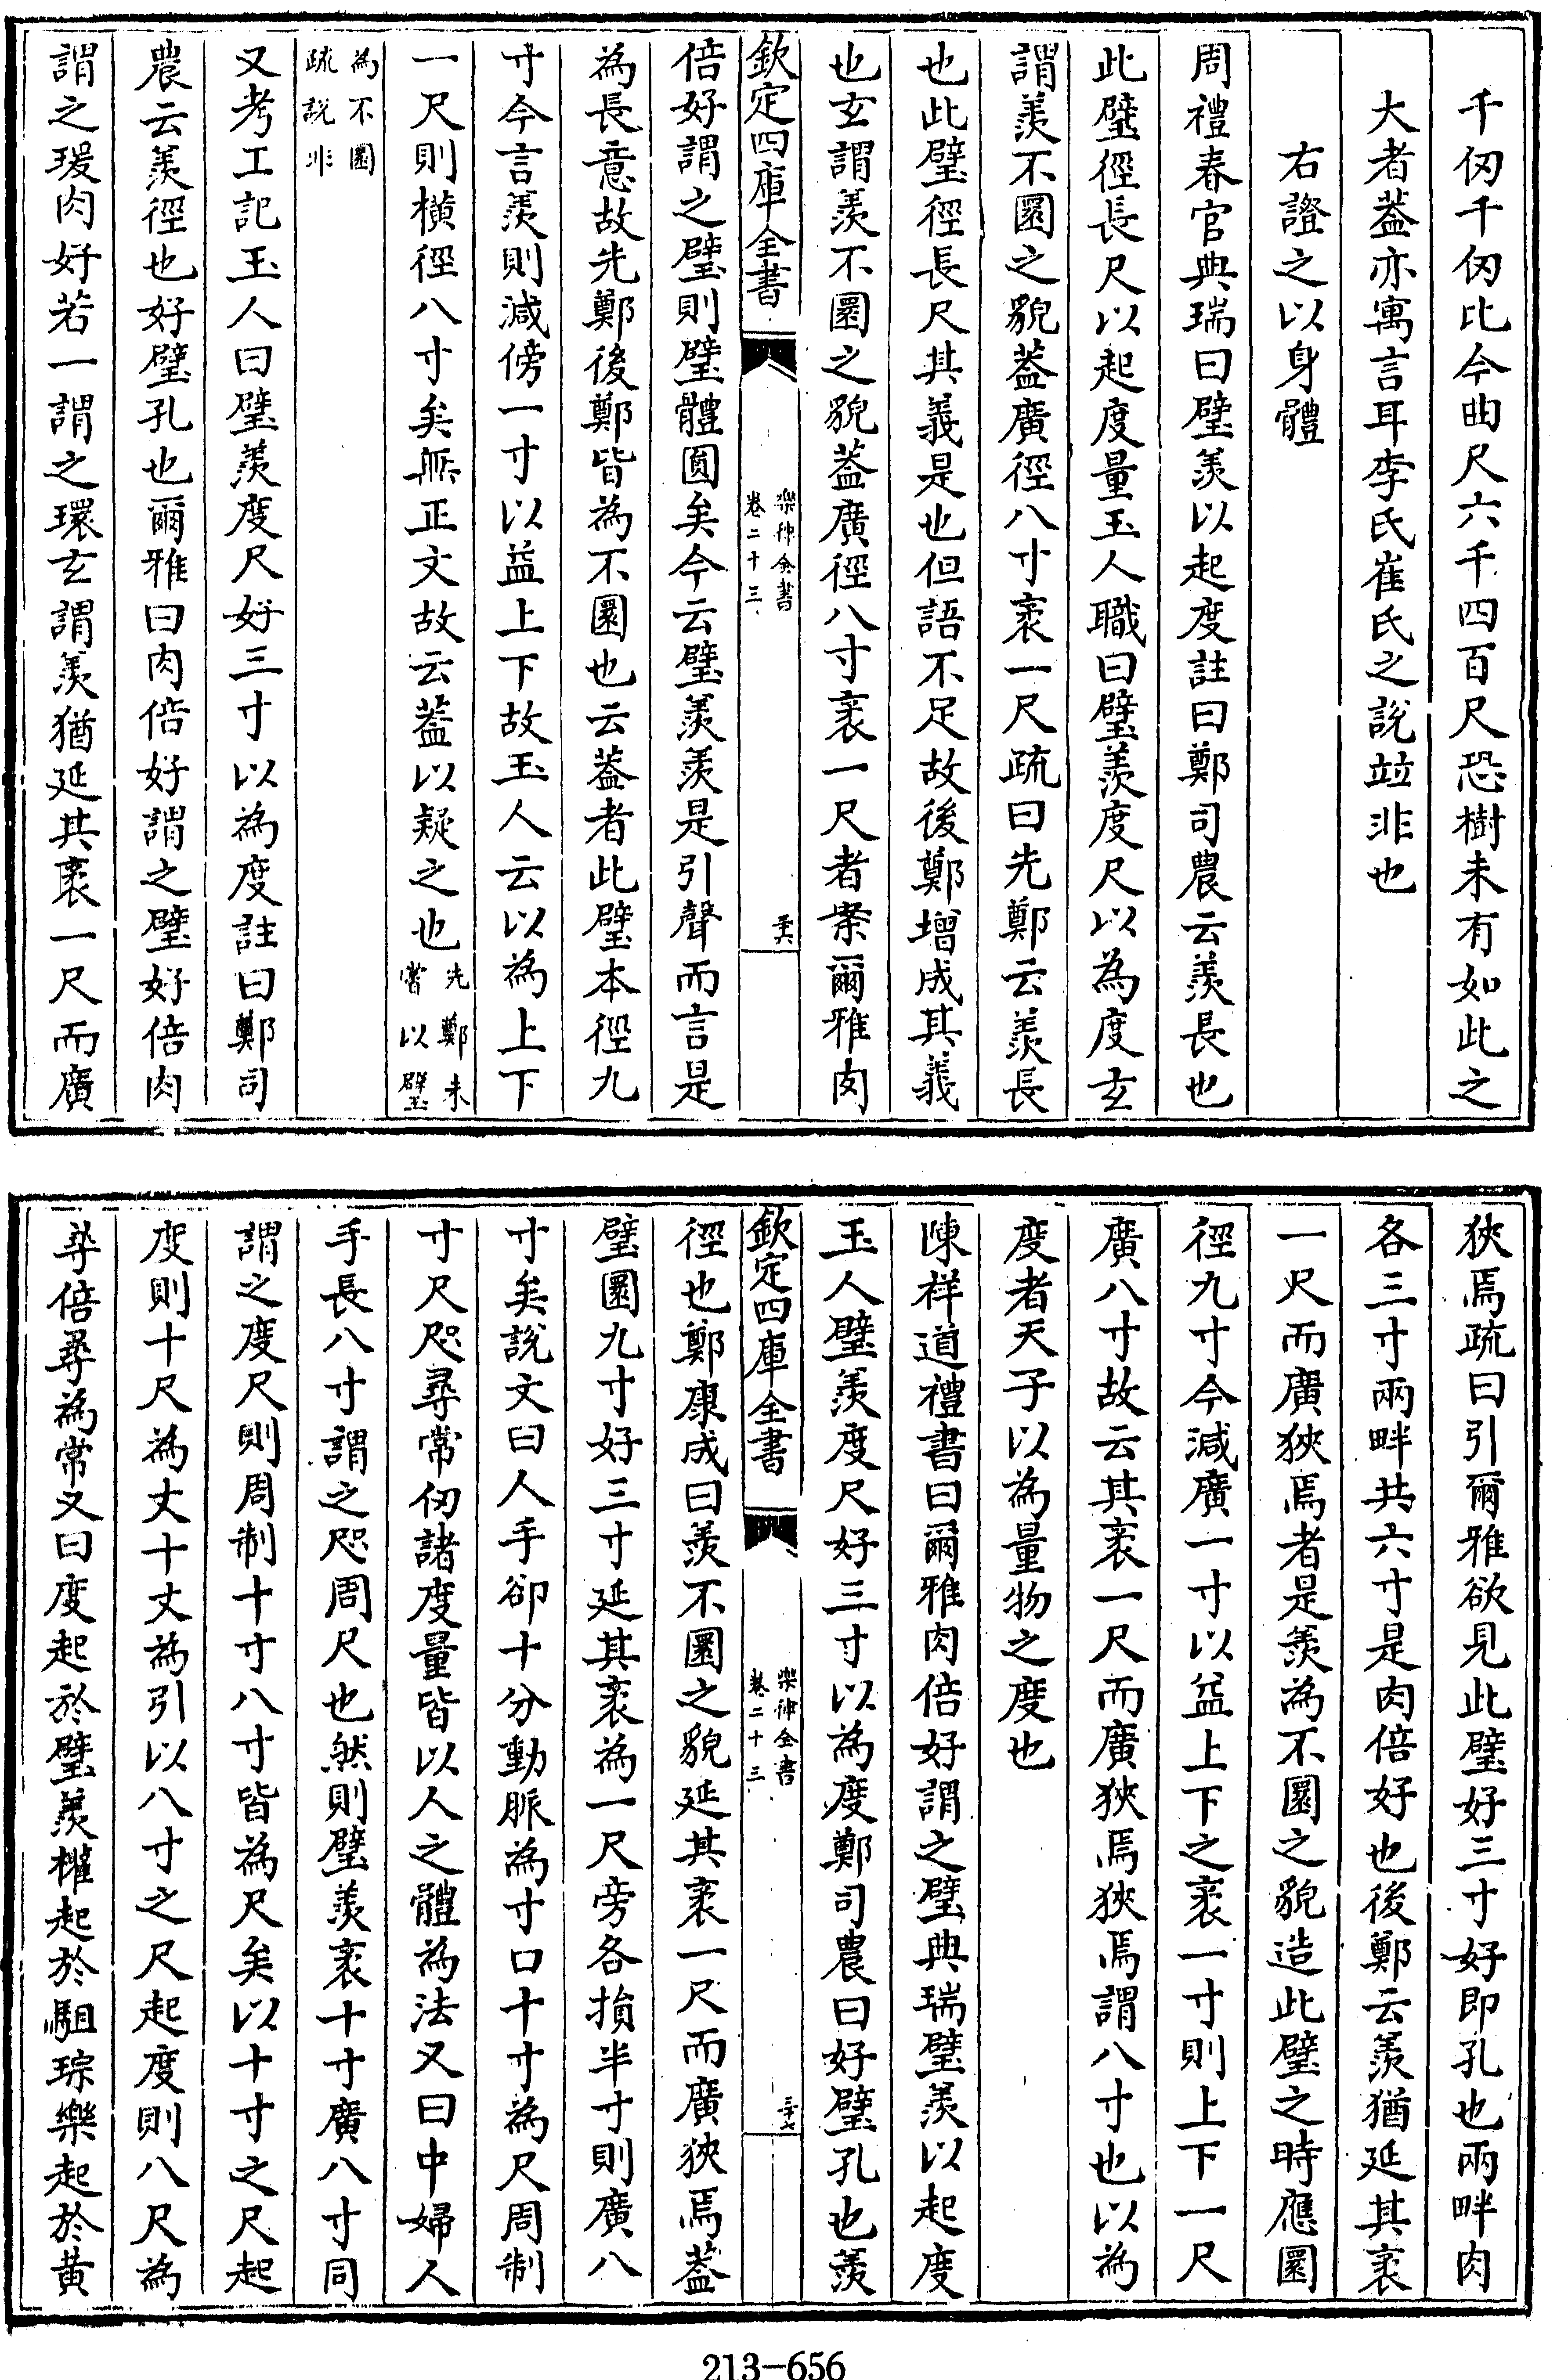 千仞千仞比今曲尺六千四百尺恐樹未有如此之
大者葢亦寓言耳李氏崔氏之說竝非也
右證之以身體
周禮春官典瑞曰璧羨以起度註曰鄭司農云羨長也
此璧徑長尺以起度量玉人職曰璧羨度尺以為度玄
謂羨不圜之貌葢廣徑八寸袤一尺疏曰先鄭云羨長
也此璧徑長尺其義是也但語不足故後鄭增成其義
也玄謂羨不圜之貌葢廣徑八寸袤一尺者案爾雅肉
欽定四庫全書
樂律全書
卷二十三
三十六
倍好謂之璧則璧體圓矣今云璧羨羨是引聲而言是
為長意故先鄭後鄭皆為不圜也云葢者此璧本徑九
寸今言羨則減傍一寸以益上下故玉人云以為上下
一尺則橫徑八寸矣無正文故云葢以疑之也先鄭未
嘗以璧
為不圜
疏說非
又考工記玉人曰璧羨度尺好三寸以為度註曰鄭司
農云羨徑也好璧孔也爾雅曰肉倍好謂之璧好倍肉
謂之瑗肉好若一謂之環玄謂羨猶延其袤一尺而廣
狹焉疏曰引爾雅欲見此璧好三寸好即孔也兩畔肉
各三寸兩畔共六寸是肉倍好也後鄭云羨猶延其袤
一尺而廣狹焉者是羨為不圜之貌造此璧之時應圜
徑九寸今減廣一寸以益上下之袤一寸則上下一尺
廣八寸故云其袤一尺而廣狹焉狹焉謂八寸也以為
度者天子以為量物之度也
陳祥道禮書曰爾雅肉倍好謂之璧典瑞璧羨以起度
玉人璧羨度尺好三寸以為度鄭司農曰好璧孔也羨
欽定四庫全書
樂律全書
卷二十三
三十七
徑也鄭康成曰羨不圜之貌延其袤一尺而廣狹焉葢
璧圜九寸好三寸延其袤為一尺旁各損半寸則廣八
寸矣說文曰人手卻十分動脈為寸口十寸為尺周制
寸尺咫尋常仞諸度量皆以人之體為法又曰中婦人
手長八寸謂之咫周尺也然則璧羨袤十寸廣八寸同
謂之度尺則周制十寸八寸皆為尺矣以十寸之尺起
度則十尺為丈十丈為引以八寸之尺起度則八尺為
尋倍尋為常又曰度起於璧羨權起於駔琮樂起於黄
213-656